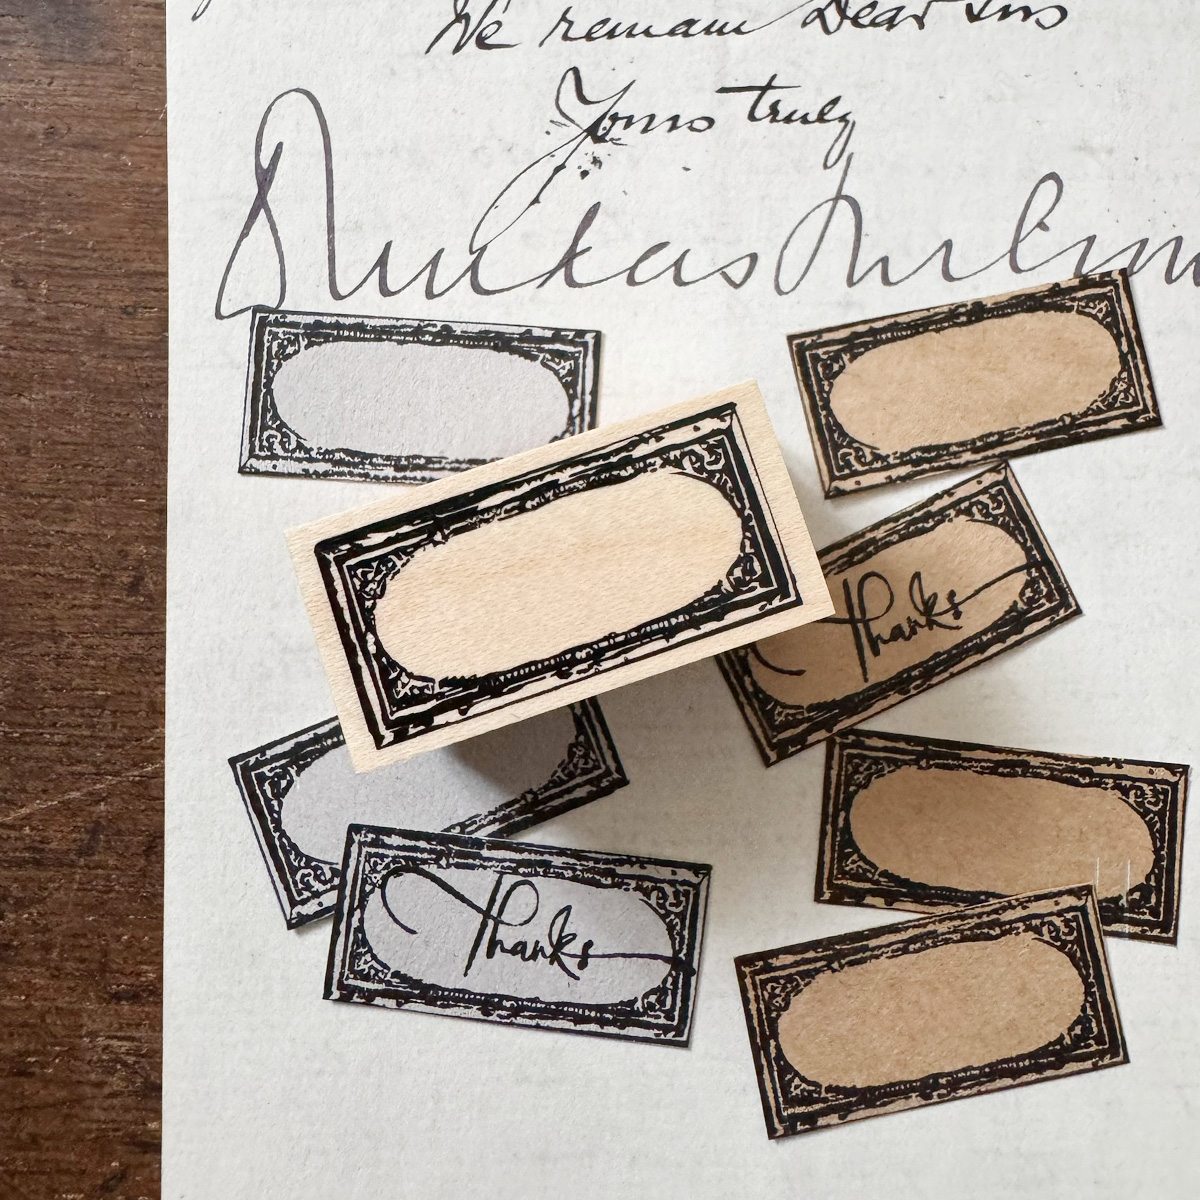 We remain Dear Sirs
Yours truly
Thanks
Thanks